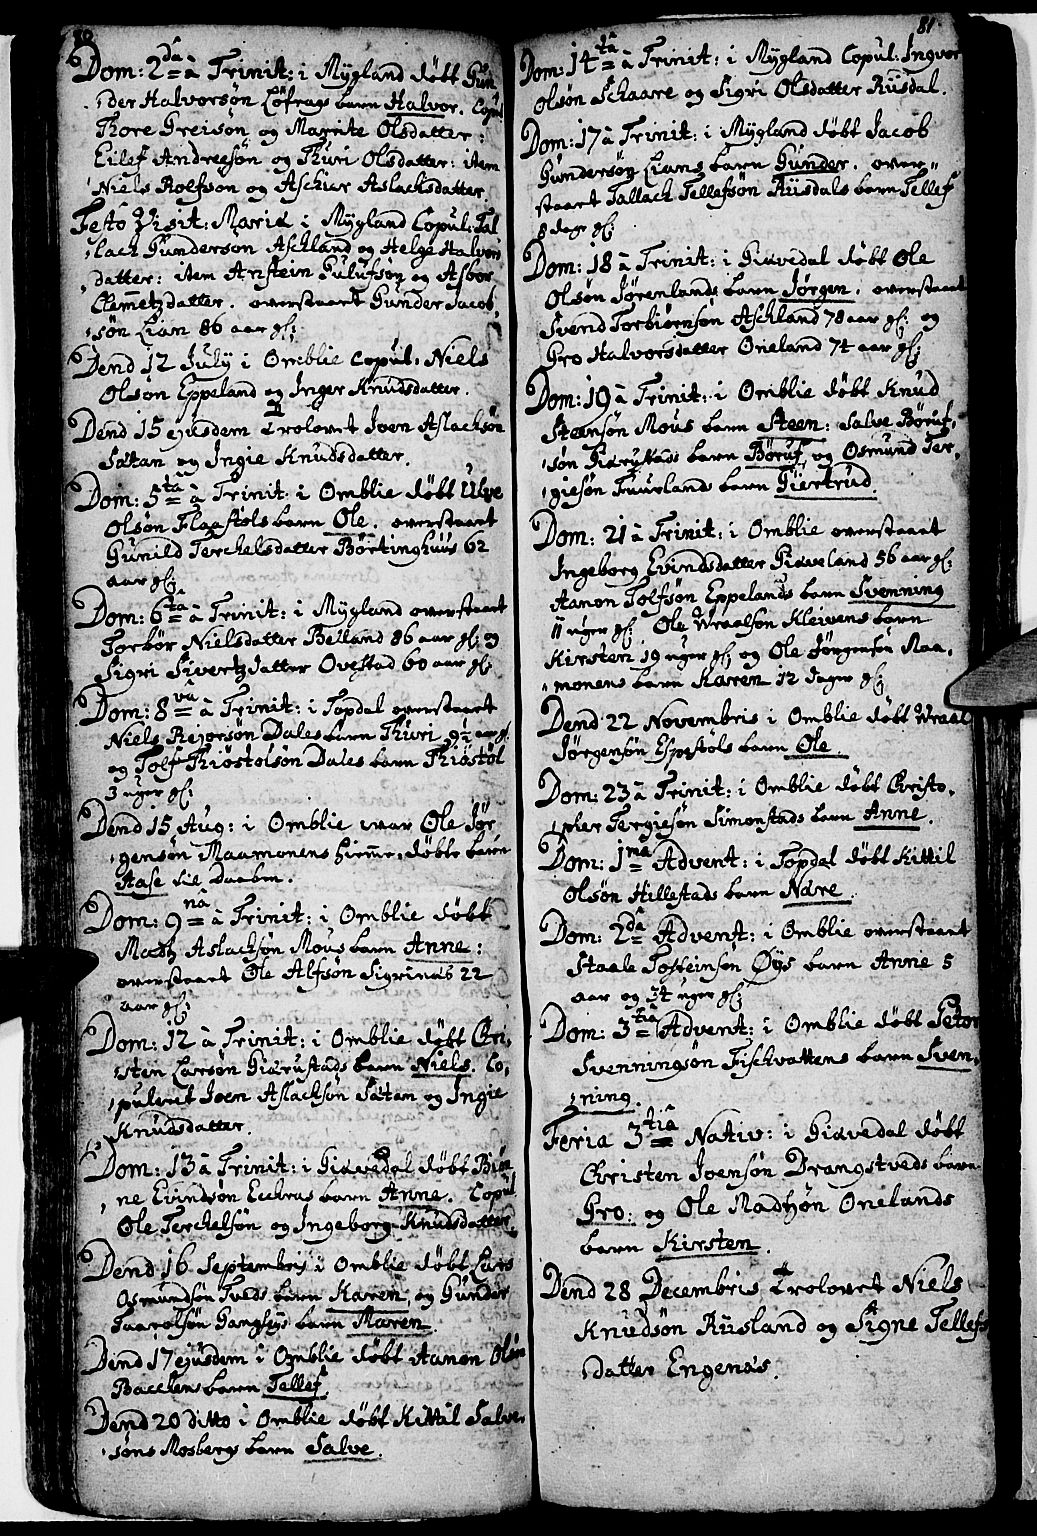 80
Dom: 2da à Trinit: i Mygland døbt Gun¸
¸der Halvorsøn Løfrags barn Halvor. Copul
Thore Greisøn og Marrite Olsdatter:
Eilef Andreesøn og Thuri Olsdatter: item
Niels Rolfson og Aschier Aslachsdatter.
Festo Visit: Mariæ i Mygland Copul: Tal
¸lach Gunderson Aschland og Helge Halvors
¸datter: item Anstein Gulufsøn og Asbor
Clemetzdatter. overstaaet Gunder Jacob¸
¸søn Lian 86 aar gl:
Dend 12 July i Omblie Copul: Niels
Olson Eppeland og Inger Knudsdatter.
Dend 15 ejusdem Trolovet Joen Aslachsøn
Satan og Ingie Knudsdatter.
Dom: 5ta à Trinit: i Omblie døbt Ulve
Olsøn Flaastøls barn Ole. overstaaet
Gunild Terchelsdatter Børtinghuus 62
aar gl:
Dom: 6ta à Trinit: i Mygland overstaaet
Torbør Nielsdatter Belland 86 aar gl: og
Sigri Sivertzdatter Ovestad 60 aar gl:
Dom: 8va à Trinit: i Topdal overstaaet
Niels Rejorsøn Dales barn Thuri 9½ aar gl.
og Tolf Thiøstolsøn Dales barn Thiøstøl
3 uger gl:
Dend 15 Aug: i Omblie war Ole Jør
¸gensøn Maamonens hieme¸døbte barn
Aase til Daaben.
Dom: 9na à Trinit: i Omblie døbt
Madtz Aslachsøn Mous barn Anne:
overstaaet Ole Alfsøn Sigrinæs 22
aar gl:
Dom: 12 à Trinit: i Omblie døbt Chri¸
¸sten Larsøn Giærustads barn Niels. Co¸
¸puleret Joen Aslachsøn Satan og Ingie
Knudsdatter.
Dom: 13 à Trinit: i Giævedal døbt Biør
¸ne Evindsøn Eccheræs barn Anne. Copul
Ole Terchelsøn og Ingeborg Knudsdatter.
Dend 16 Septembris i Omblie døbt Lars
Osmundsøn Tveds barn Karen, og Gunder
Taarolsøn Gangsøys barn Maren.
Dend 17 ejusdem i Omblie døbt Aanon Olsøn
Bacchens barn Tellef.
Dend 20 ditto i Omblie døbt Kittil Salve¸
¸søns Mosbergs barn Salve.
81
Dom: 14ta à Trinit: i Mygland Copul: Ingvor
Olsøn Schaare og Sigri Olsdatter Riisdal.
Dom: 17 à Trinit: i Mygland døbt Jacob
Gundersøn Lians barn Gunder. over¸
staaet Tallach Tellefsøn Riisdals barn Tellef
8 dage gl:
Dom: 18 à Trinit: i Giævedal døbt Ole
Olsøn Jørenlands barn Jørgen. overstaaet
Svend Torbiørnsøn Aschland 78 aar gl: og
Gro Halvorsdatter Oneland 74 aar gl:
Dom: 19 à Trinit: i Omblie døbt Knud
Steensøn Mous barn Steen: Salve Børuf¸
¸søn barn Børuf, og Osmund Ter¸
¸giesøn Fuurland barn Giertrud.
Dom: 21 à Trinit: i Omblie overstaaet
Ingeborg Evindsdatter Giæveland 56 aar gl:
Aanon Tolfsøn Eppelands barn Svenning
11 uger gl: Ole Wraalsøn Kleivens barn
Kirsten 19 uger gl: og Ole Jørgensøn Maa¸
¸monens barn Karen 12 Dager gl:
Dend 22 Novembris i Omblie døbt Wraal
Jørgensøn Espestøls barn Ole.
Dom: 23 à Trinit: i Omblie døbt Christo¸
¸pher Tergiesøn Simonstads barn Anne.
Dom: 1ma Advent: i Topdal døbt Kittil
Olsøn Hillestads barn Nare.
Dom: 2da Advent: i Omblie overstaaet
Staale Tosteinsøn Øys barn Anne 5
aar og 34 uger gl:
Dom: 3tia Advent: i Omblie døbt Peter
Svenningsøn Fischvattens barn Sven¸
¸ning.
Feria 3tia Nativ: i Giævedal døbt
Christen Joensøn Drangstveds barn
Gro: og Ole Madtzøn Onelands
barn Kirsten.
Dend 28 Decembris Trolovet Niels
Knudsøn Riisland og Signe Tellefs
¸datter Engenæs.